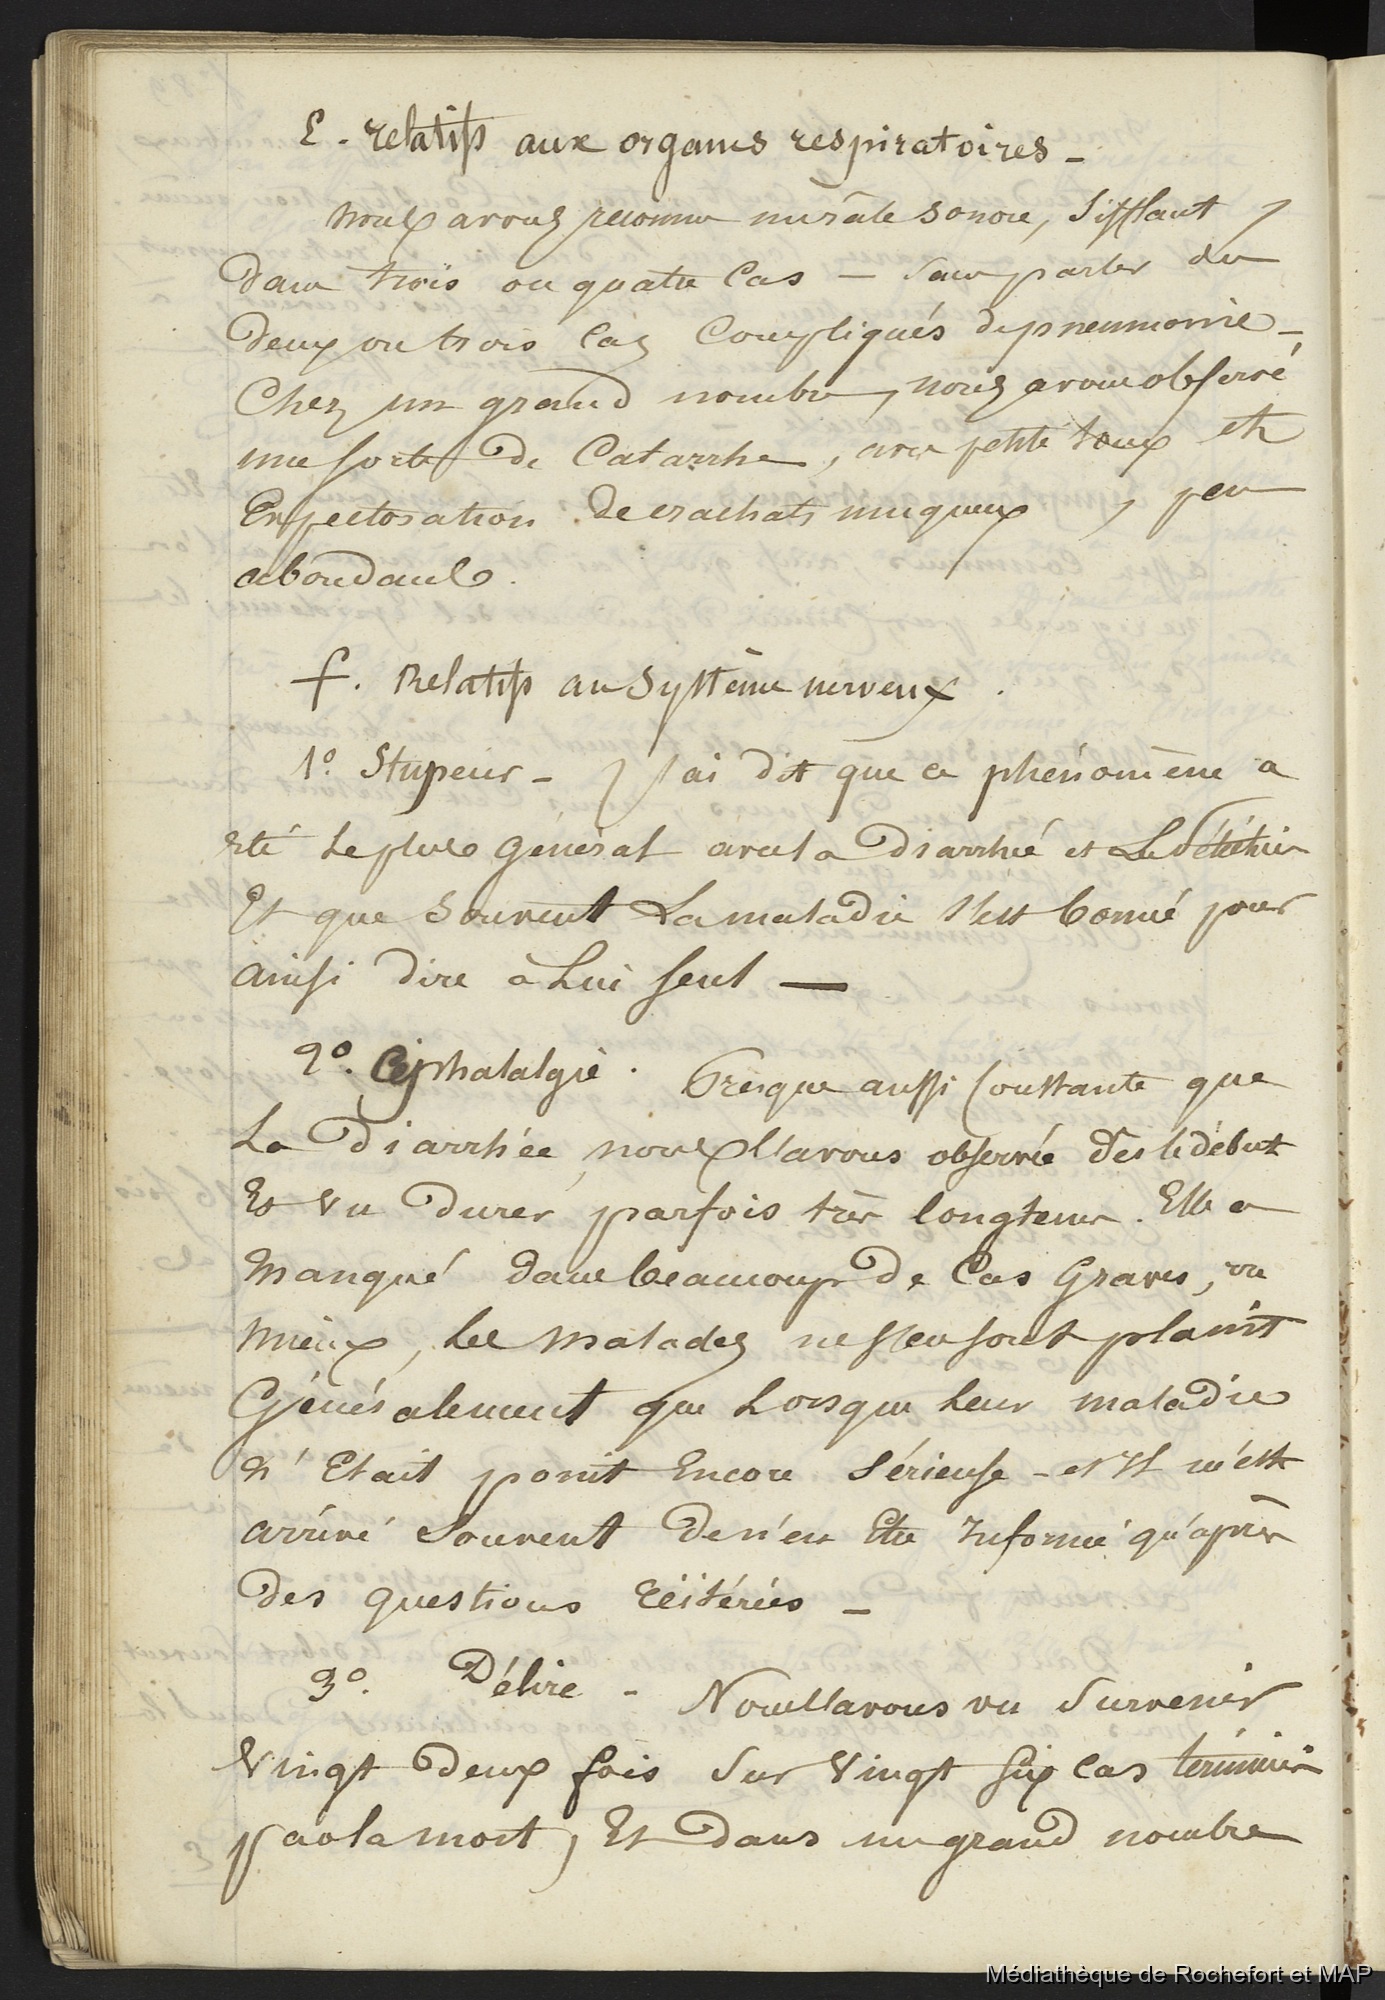 E - relatifs aux organes respiratoires -
nous avons reconnu un râle sonore, sifflant,
dans trois ou quatre cas - sans parler de
deux ou trois cas compliqués de pneumonie -
Chez un grand nombre, nous avons observé
une sorte de Catarrhe, avec petite toux et
Expectoration de crachats muqueux, peu
abondants.
f. Relatifs au système nerveux.
1º. Stupeur - J'ai dit que ce phénomène a
été le plus général avec la Diarrhée et
Et que souvent La maladie s'est bornée pour
ainsi dire à Lui seul —
2º. Céphalalgie. Presque aussi constante que
La Diarrhée, nous l'avons observée dès le début
Et vu Durer parfois très longtems. Elle a
Manqué dans beaucoup de Cas Graves, ou
Mieux, Les malades ne s'en sont plaint
Généralement que Lorsque Leur maladie
n'Etait point Encore Sérieuse - et Il m'est
arrivé Souvent de n'en Etre Informé qu'après
des questions réitérées -
3º. Délire - Nous l'avons vu Survenir
Vingt deux fois Sur Vingt six cas terminés
par la mort, Et dans un grand nombre
Médiathèque de Rochefort et MAP